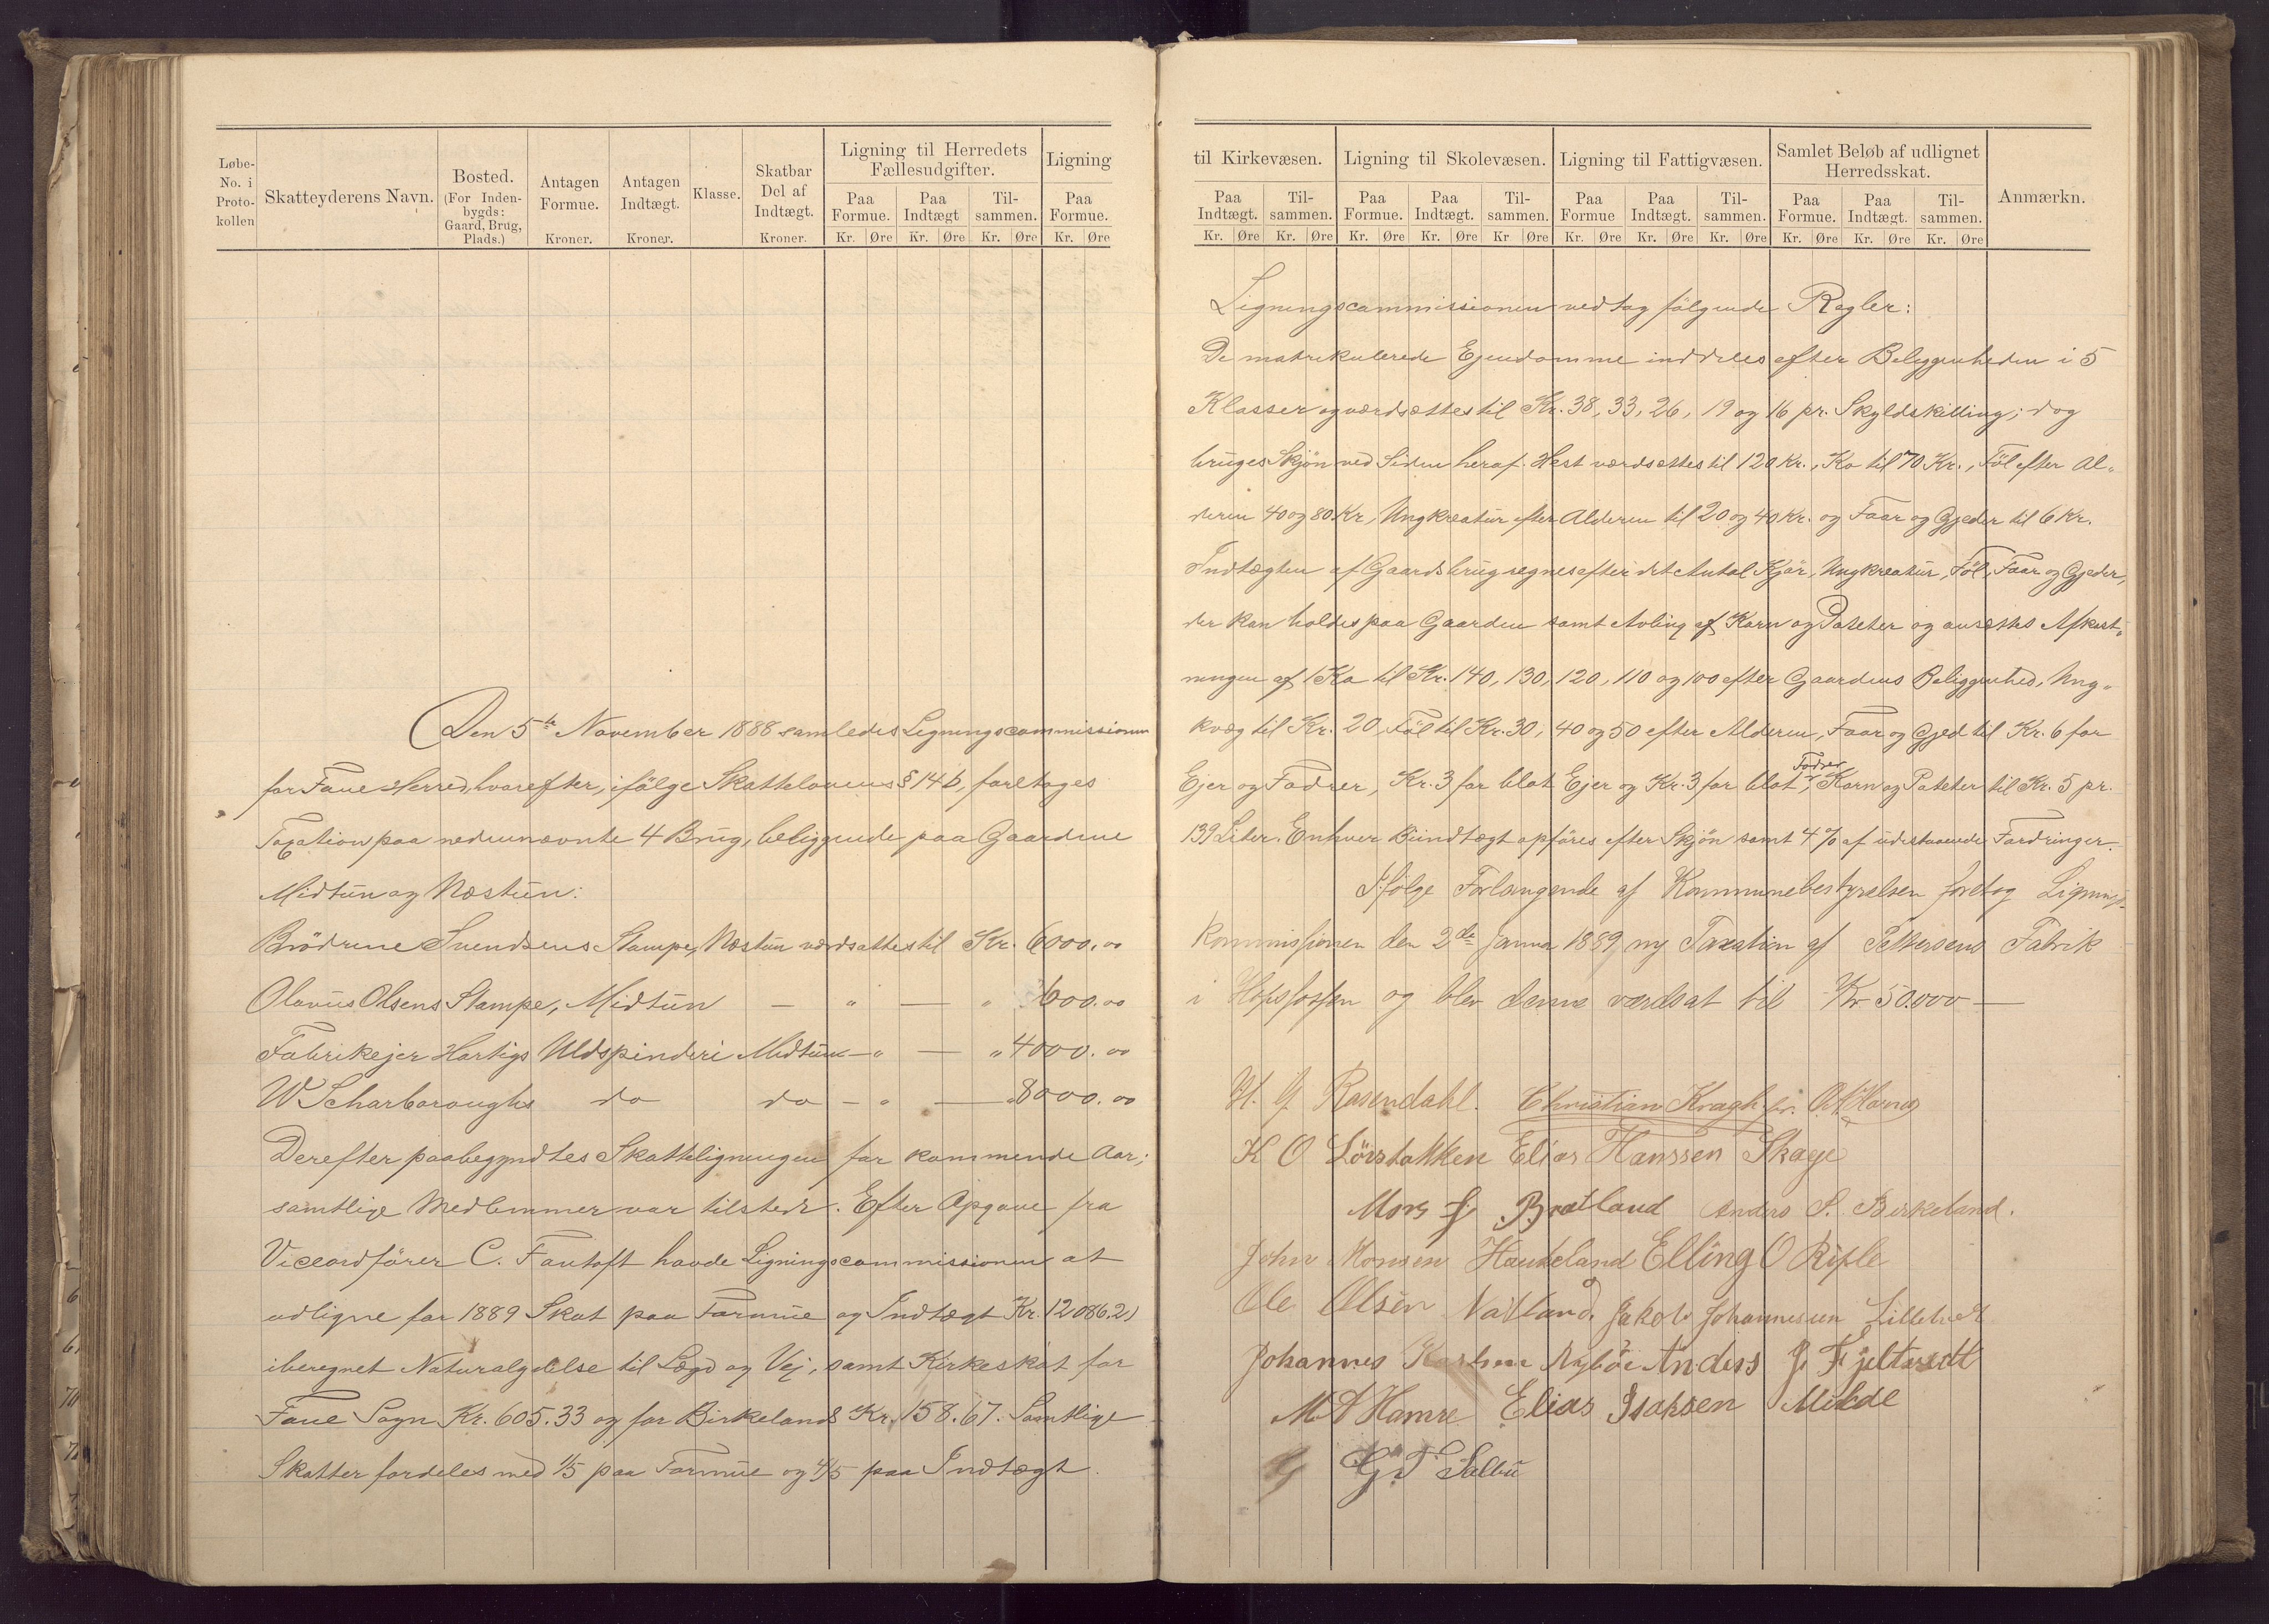 Løbe-No. i Proto-kollen
Skatteyderens Navn.
Bosted.
(For Inden-bygds: Gaard, Brug, Plads.)
Antagen Formue.
Kroner.
Antagen Indtægt.
Kroner.
Klasse.
Skatbar Del af Indtægt.
Kroner.
Ligning til Herredets Fællesudgifter.
Paa Formue. Paa Indtægt Til-sammen.
Kr. Øre Kr. Øre Kr. Øre
Ligning
Paa Formue.
Kr. Øre
Den 5te November 1888 samledes Ligningscommissionen
for Fane Herred, hvorefter, ifölge Skattelovens § 14 b, foretoges
Taxation paa nedennævnte 4 Brug, beliggende paa Gaardene
Midtun og Næstun:
Brödrene Svendsens Stampe, Næstun værdsattes til Kr. 6000.00
Olavus Olsens Stampe, Midtun — " — " 600.00
Fabrikejer Hartigs Uldspinderi Midtun — " — " 4000.00
W Scharboroughs do do — " — " 8000.00
Derefter paabegyndtes Skatteligningen for kommende Aar;
samtlige Medlemmer var tilstede. Efter Opgave fra
Viceordfører C. Fantoft havde Ligningscommissionen at
udligne for 1889 Skat paa Formue og Indtægt Kr. 12086.21
iberegnet Naturalydelse til Lægd og Vej, samt Kirkeskat for
Fane Sogn Kr. 605.33 og for Birkelands Kr. 158.67. Samtlige
Skatter fordeles med 1/5 paa Formue og 4/5 paa Indtægt.
til Kirkevæsen.
Paa Indtægt. Til-sammen.
Kr. Øre Kr. Øre
Ligning til Skolevæsen.
Paa Formue. Paa Indtægt. Til-sammen.
Kr. Øre Kr. Øre Kr Øre
Ligning til Fattigvæsen.
Paa Formue Paa Indtægt. Til-sammen.
Kr. Øre Kr. Øre Kr. Øre
Samlet Beløb af udlignet Herredsskat.
Paa Formue. Paa Indtægt. Til-sammen.
Kr. Øre Kr. Øre Kr. Øre
Anmærkn.
Ligningscommissionen vedtog følgende Regler:
De matrikulerede Ejendomme inddeles efter Beliggenheden i 5
Klasser og værdsættes til Kr. 38, 33, 26, 19 og 16 pr. Skyldskilling; dog
bruges Skjön ved Siden heraf. Hest værdsættes til 120 Kr., Ko til 70 Kr., Föl efter Al-
deren 40 og 80 Kr, Ungkreatur efter Alderen til 20 og 40 Kr. og Faar og Gjeder til 6 Kr.
Indtægten af Gaardsbrug regnes efter det Antal Kjör, Ungkreatur, Föl, Faar og Gjeder,
der kan holdes paa Gaarden samt Avling af Korn og Poteter og ansættes Afkast-
ningen af 1 Ko til Kr. 140, 130, 120, 110 og 100 efter Gaardens Beliggenhed, Ung-
kvæg til Kr. 20, Föl til Kr. 30, 40 og 50 efter Alderen, Faar og Gjed til Kr. 6 for
Ejer og Fodrer, Kr. 3 for blot Ejer og Kr. 3 for blot Fodrer, Korn og Poteter til Kr. 5 pr.
139 Liter. Enhver Biindtægt opföres efter Skjön samt 4 % af udestaaende Fordringer.
Ifølge Forlangende af Kommunebestyrelsen foretog Lignings-
kommissionen den 2de Janua 1889 ny Taxation af Pettersens Fabrik
i Hopsfossen og blev denne værdsat til Kr 50.000 —
H. G Rosendahl. Christian Kragh jr.
K O Lörstakken Elias Hanssen Skage
Mons J. Bratland Anders S. Birkeland.
John Monsen Haukeland Elling O Riple
Ole Olsen Natland. Jakob Johannesen
Johannes Nybö Anders J. Fjeltvedt
M A Hamre Elias Isaksen Milde
G. T. Salbu